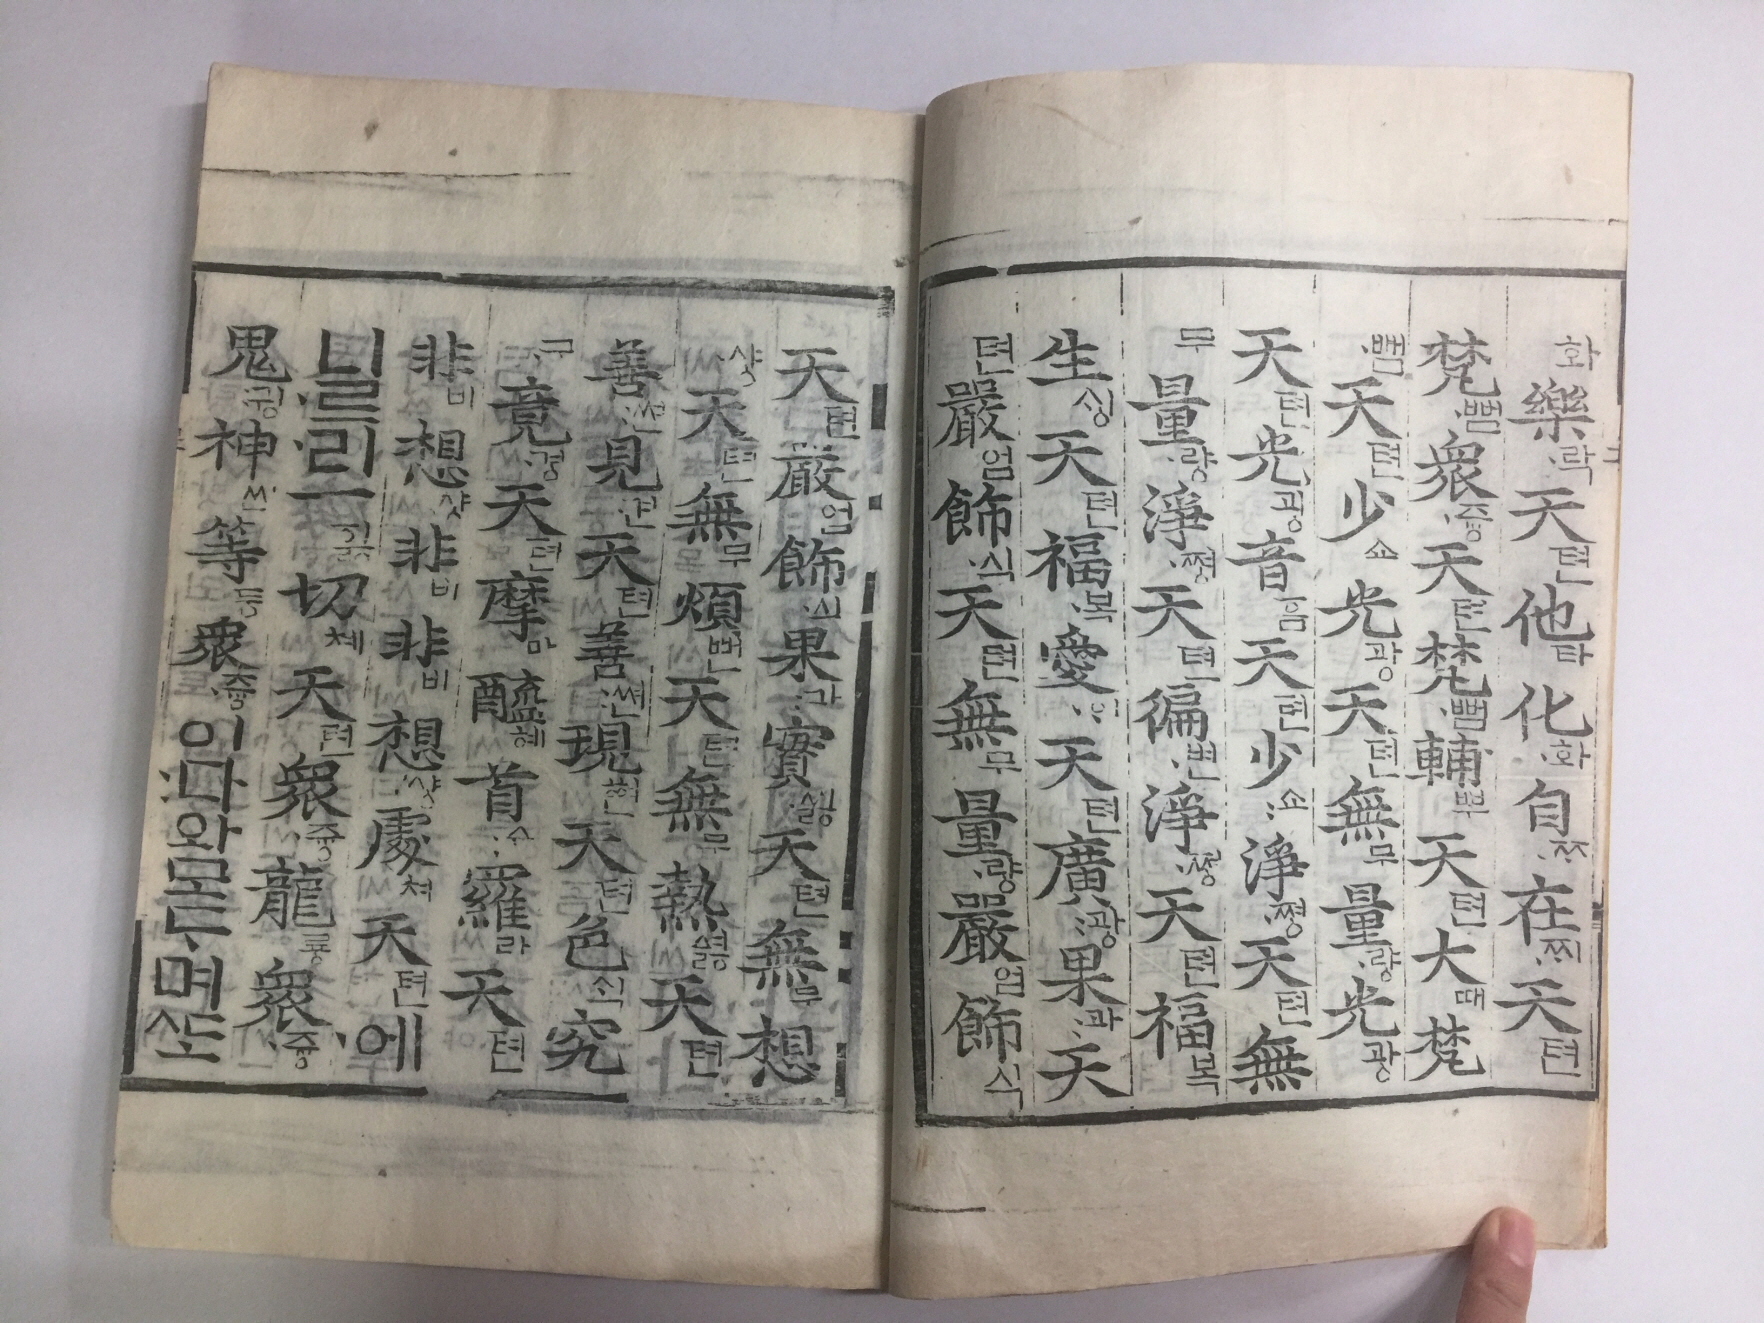 화樂락天텬他타化화自ᄍᆞ在ᄍᆡ天텬
梵뻠衆즁天텬梵뻠輔뿌天텬大때梵
뻠天텬少쇼光광天텬無무量량光광
天텬光광音ᅙᅳᆷ天텬少쇼淨쪙天텬無
무量량淨쪙天텬徧변淨쪙天텬福복
生싱天텬福복愛ᄋᆡ天텬廣광果과天
텬嚴엄飾식天텬無무量량嚴엄飾식
天텬嚴엄飾식果과實씨ᇙ天텬無무想
샹天텬無무煩뻔天텬無무熱ᅀᅧᇙ天텬
善쎤見견天텬善쎤現현天텬色식究
구竟경天텬摩마醯혜首슈羅라天텬
非비想샹非비非비想샹處쳐天텬에
니르리一ᅙᅵᇙ切쳬天텬衆즁龍룡衆즁
鬼귕神씬等등衆즁이다와모ᄃᆞ며ᄯᅩ